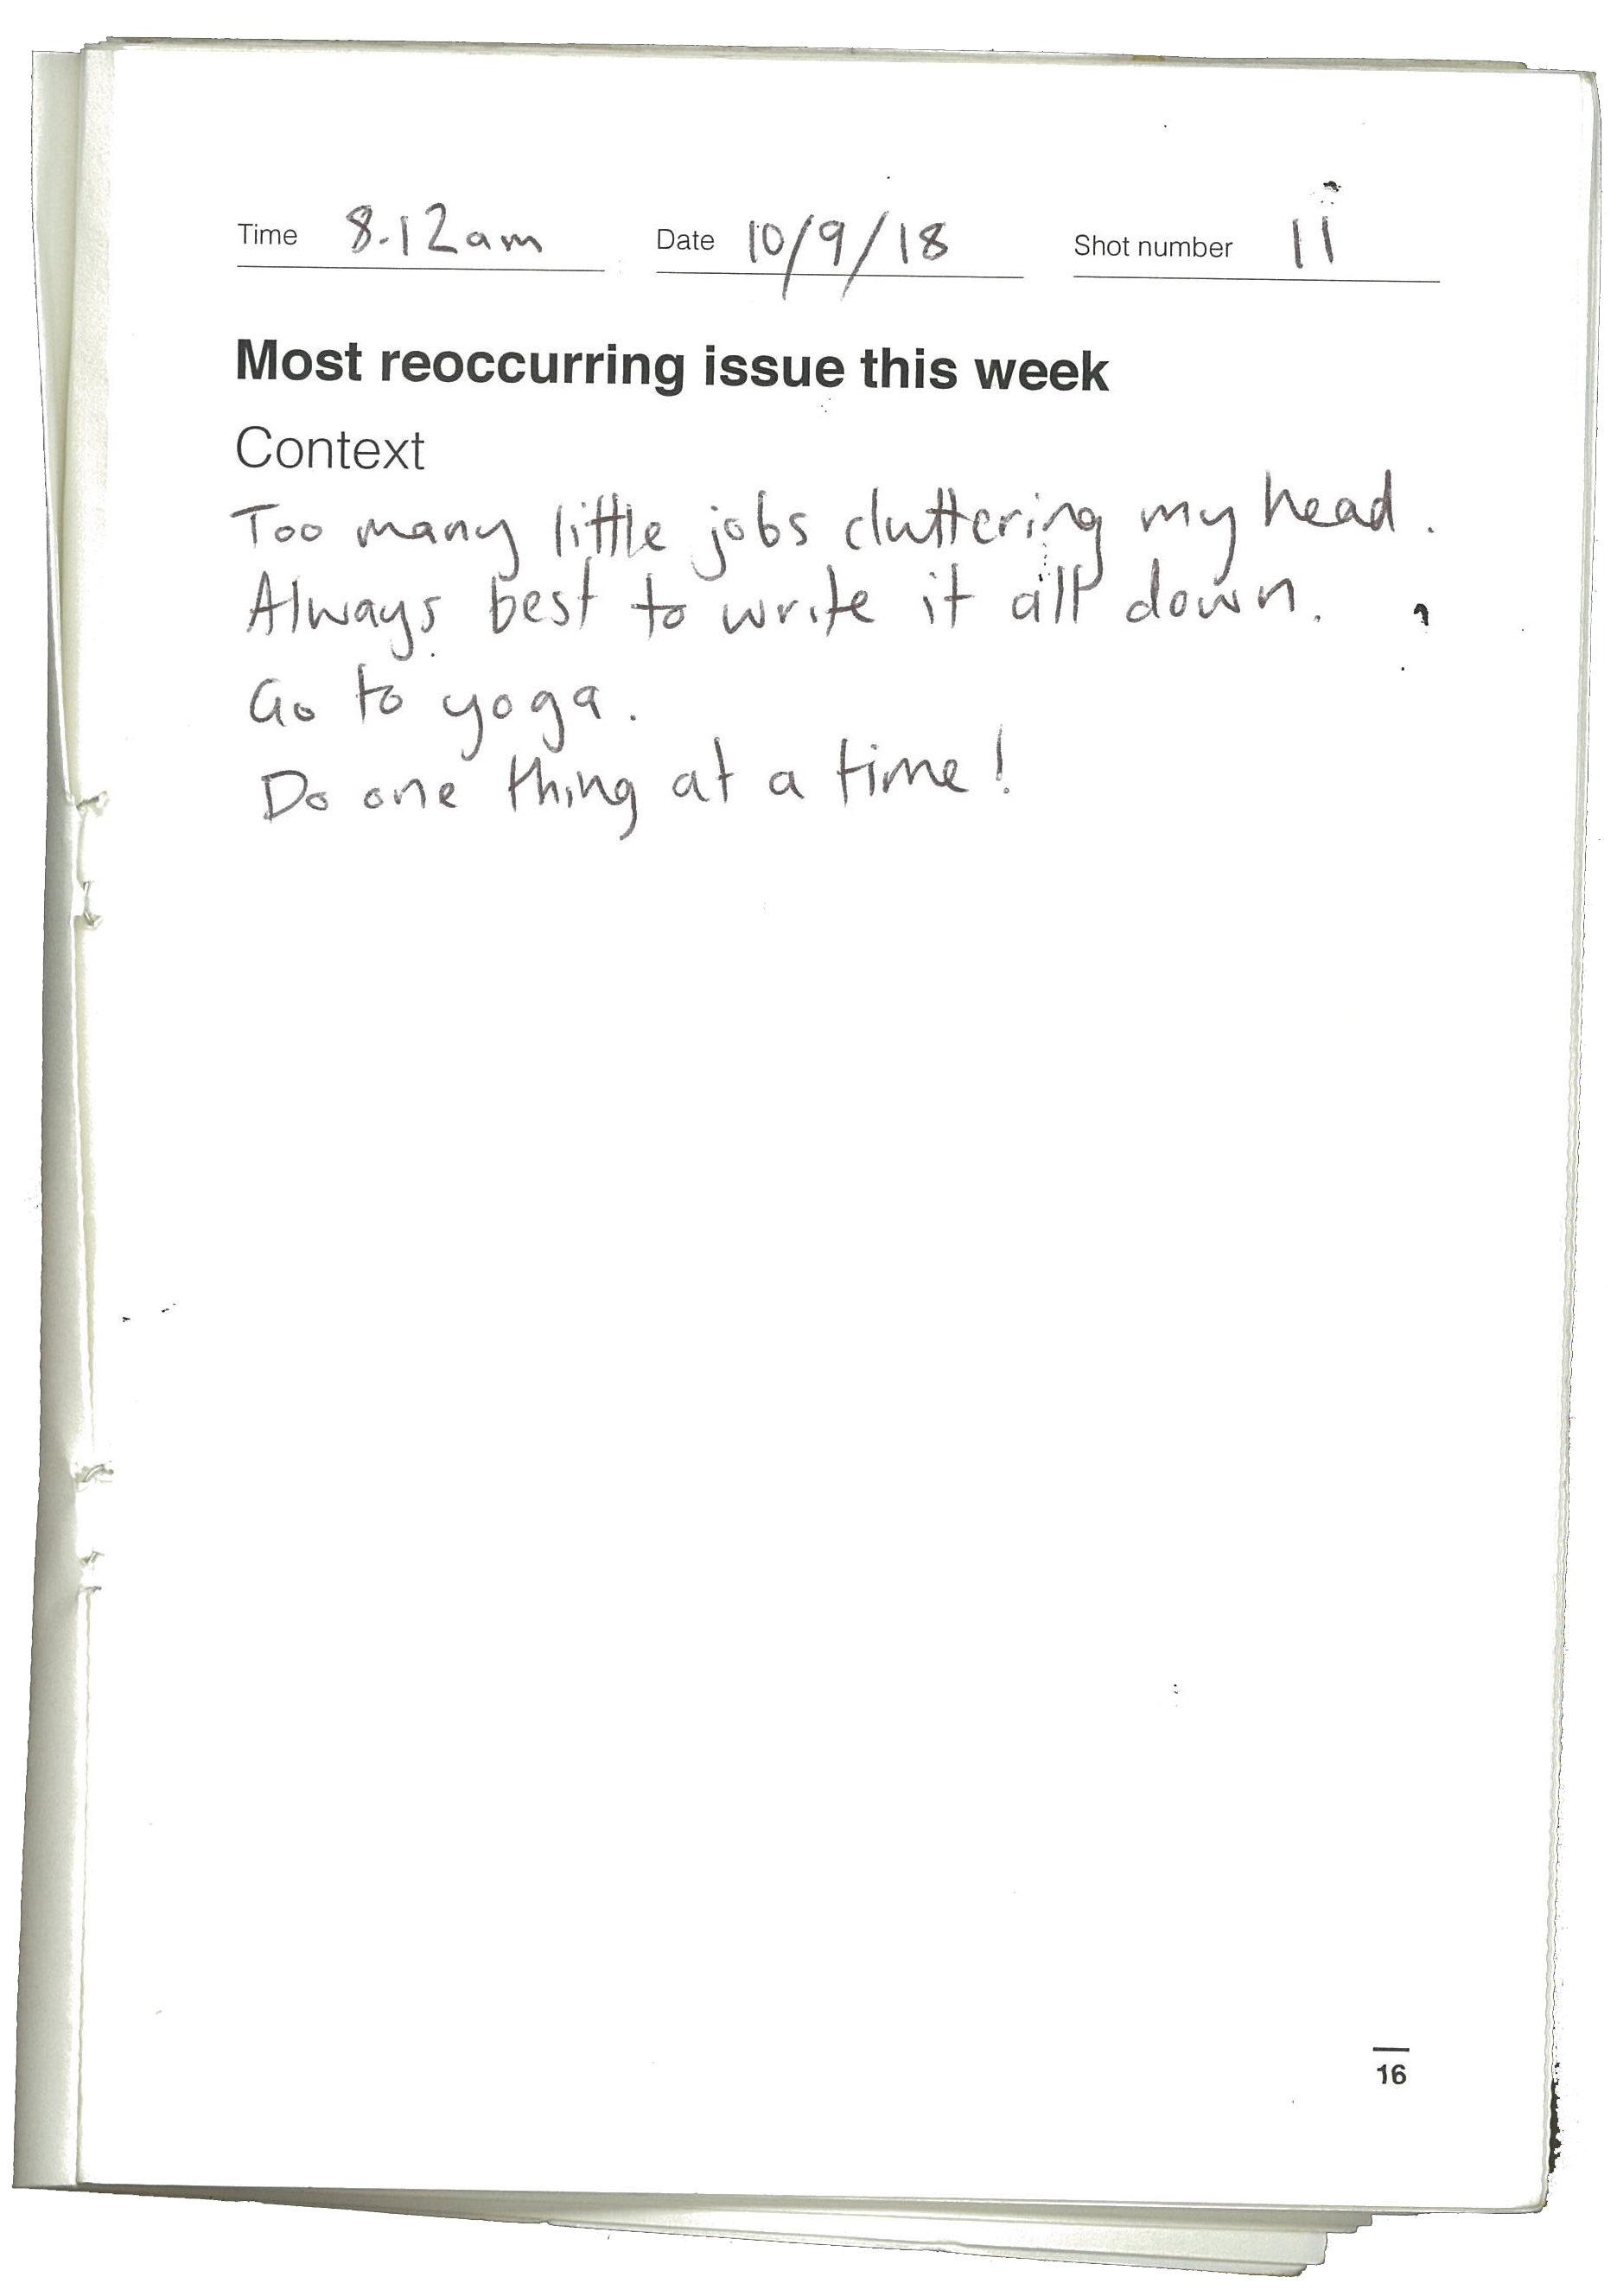 Time 8.12am Date 10/9/18 Shot number 11
Most reoccurring issue this week
Context
Too many little jobs cluttering my head.
Always best to write it all down.
Go to yoga.
Do one thing at a time!
16